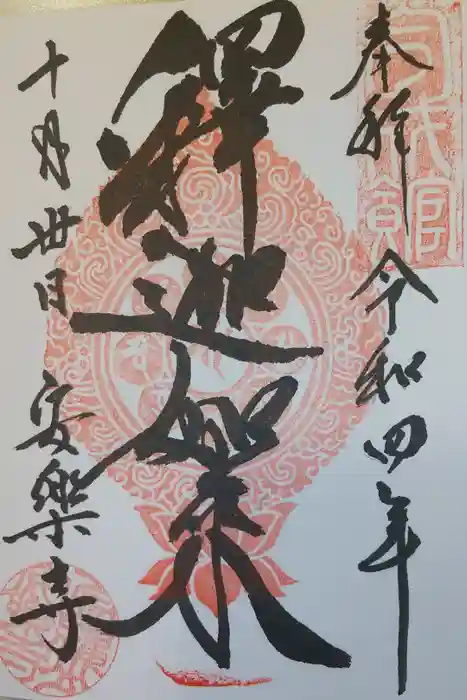 奉拝 令和四年
釋迦如来
十月卅日 安樂寺